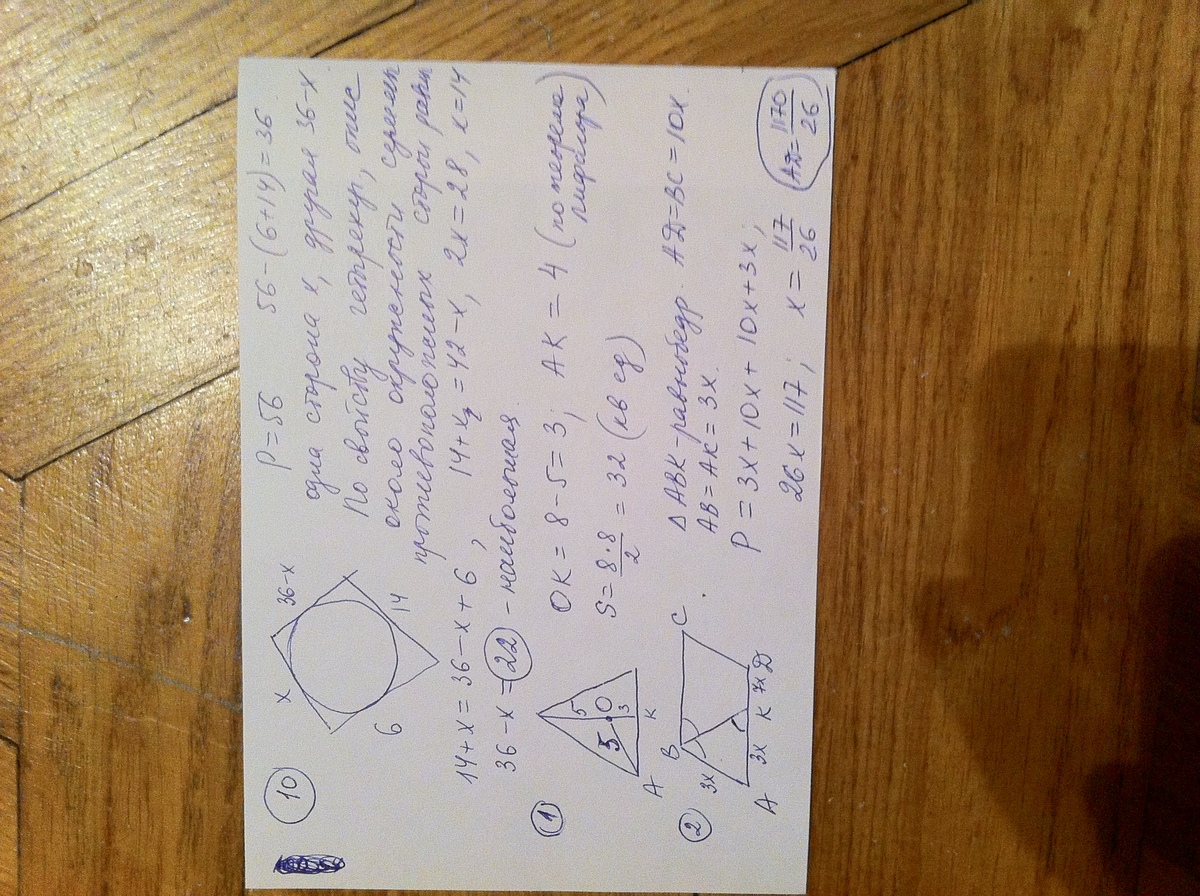 10
x
36-x
6
14
P=56 56-(6+14)=36
одна сторона x, другая 36-x
По свойству четырехуг, опис
около окружности суммы
противоположных сторон равн
14+x=36-x+6, 14+x=42-x, 2x=28, x=14
36-x=22 - наибольшая
1
5
5
O
3
A
K
OK=8-5=3; AK=4 (по теореме
пифагора)
S=8·8/2=32 (кв ед)
2
B
C
3x
A
3x
K
7x
D
Δ ABK-равнобедр. AD=BC=10x.
AB=AK=3x.
P=3x+10x+10x+3x;
26x=117; x=117/26
AD=1170/26